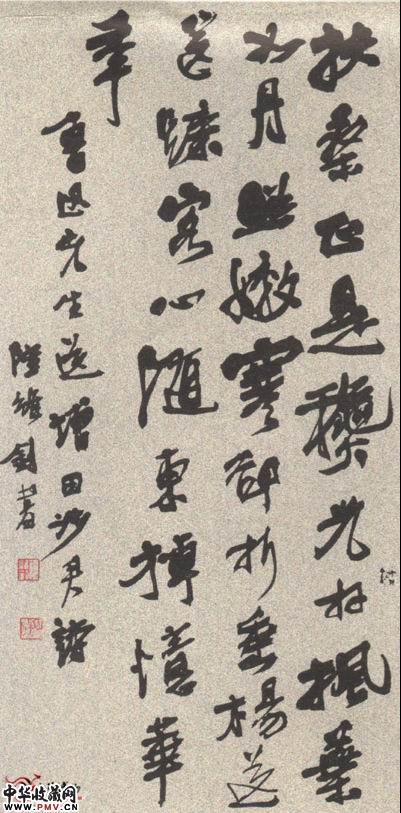 扶桒正是龝光好楓葉
如丹照嫩寒卻折垂楊送
送歸客心隨東棹憶華
年
魯迅先生送增田涉君詩
陸維釗書
中华收藏网
WWW.PMV.CN